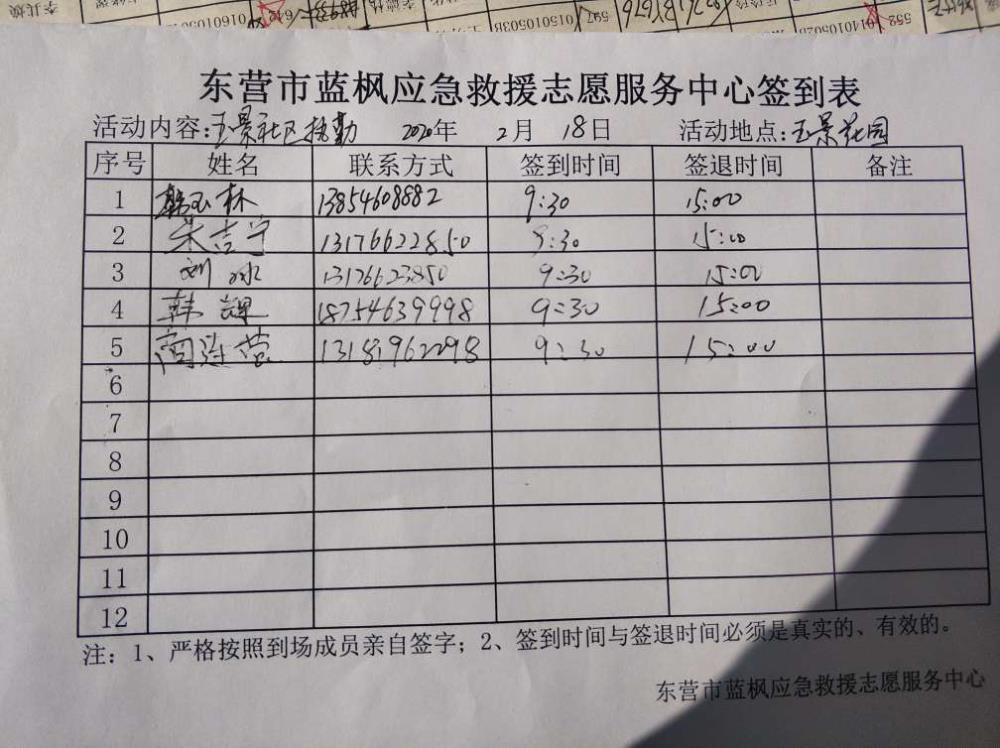 东营市蓝枫应急救援志愿服务中心签到表
活动内容:玉景社区执勤 2020年 2月 18日 活动地点:玉景花园
序号 姓名 联系方式 签到时间 签退时间 备注
1 韩玉林 13854608882 9:30 15:00
2 朱吉宁 13176622850 9:30 15:00
3 刘冰 13176623850 9:30 15:00
4 韩辉 18754639998 9:30 15:00
5 阎连营 13181962298 9:30 15:00
6
7
8
9
10
11
12
注：1、严格按照到场成员亲自签字；2、签到时间与签退时间必须是真实的、有效的。
东营市蓝枫应急救援志愿服务中心